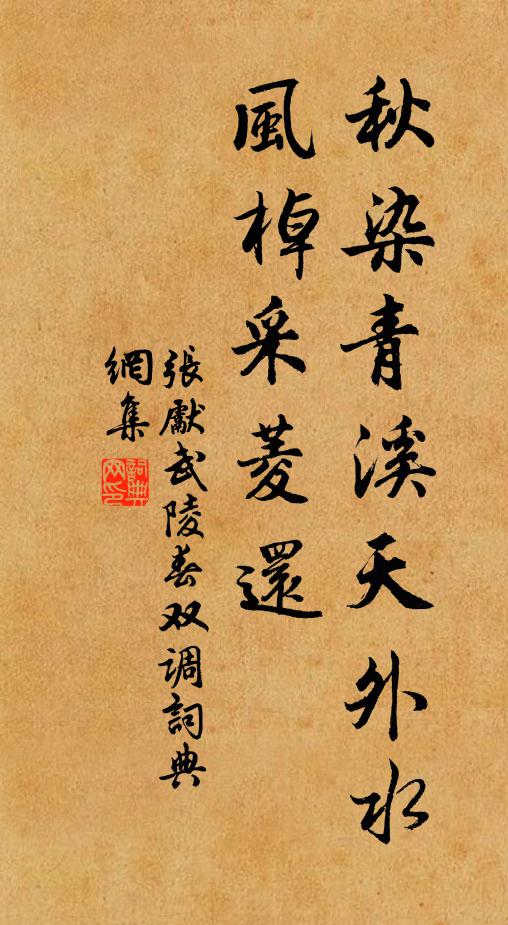 秋染青溪天外水
風棹采菱還
張獻武陵春双调詞典
網集
詞典网印